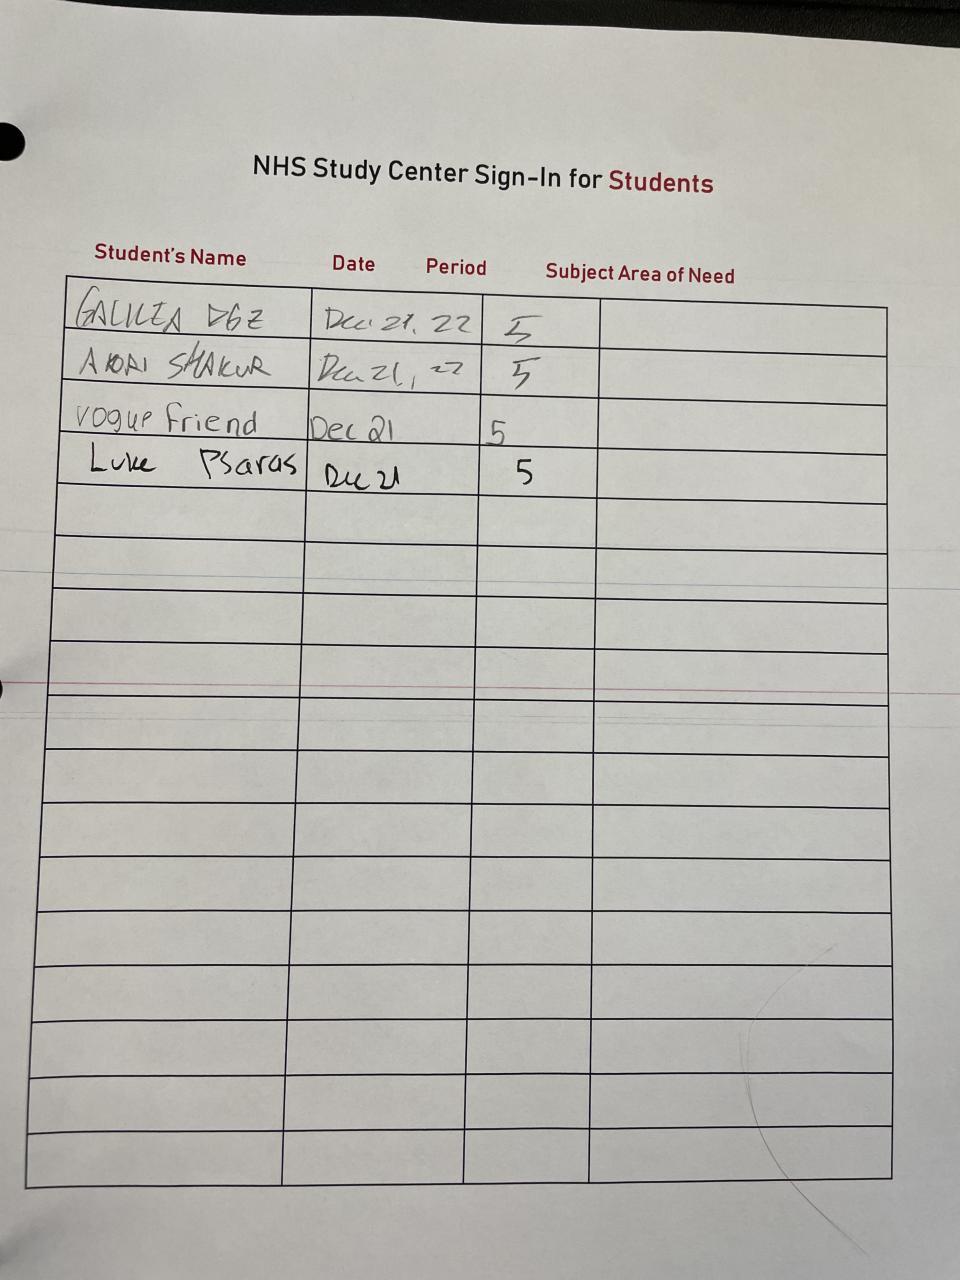 NHS Study Center Sign-In for Students
Student's Name Date Period Subject Area of Need
GALILEA DGZ Dec 21, 22 5
AKORI SHAKUR Dec 21, 22 5
vogue friend Dec 21 5
Luke Psaras Dec 21 5